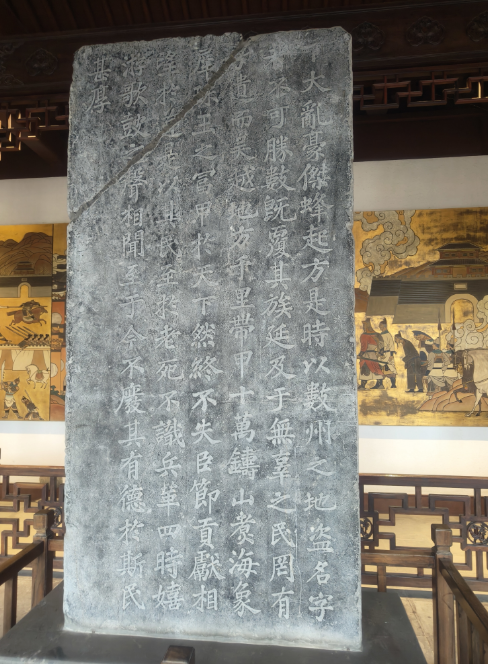 下大亂豪傑蜂起方是時以數州之地盜名字
者不可勝數既覆其族延及于無辜之民罔有
孑遺而吳越地方千里帶甲十萬鑄山煑海象
犀珠玉之冨甲於天下然終不失臣節貢獻相
望於道是以其民至於老死不識兵革四時嬉
游歌鼓之聲相聞至于今不廢其有德於斯民
甚厚